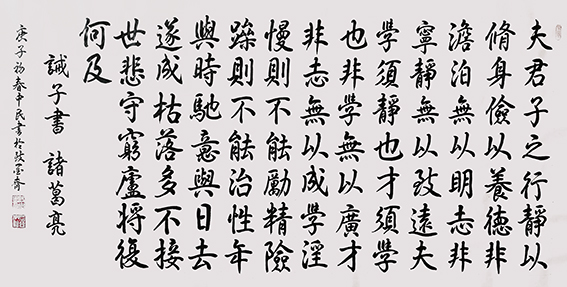 夫君子之行靜以
脩身儉以養德非
澹泊無以明志非
寧靜無以致遠夫
學須靜也才須學
也非學無以廣才
非志無以成學淫
慢則不能勵精險
躁則不能治性年
與時馳意與日去
遂成枯落多不接
世悲守窮廬將復
何及
誡子書 諸葛亮
庚子初春 民書於 墨齋